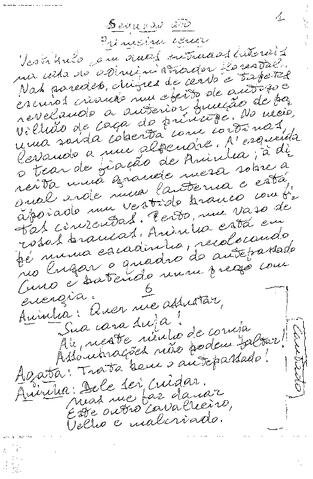 1
Segundo ato
Primeira cena
Vestíbulo com duas entradas laterais
na casa do administrador florestal.
Nas paredes, chifres de cervo e tapetes
escuros criando um efeito de antigo e
revelando a anterior função de pa
vilhão de caça do príncipe. No meio,
uma saída coberta com cortinas,
levando a um alpendre. À esquerda
o tear de fiação de Aninha; à di
reita uma grande mesa sobre a
qual arde uma lanterna e está
apoiado um vestido branco com fi
tas cinzentas. Perto, um vaso de
rosas brancas. Aninha está em
pé numa escadinha, recolocando
no lugar o quadro do antepassado
Cuno e batendo num prego com
energia.
6
Aninha: Quer me assustar,
Sua cara suja!
Ai, neste ninho de coruja
Assombrações não podem faltar!
Agata: Trata bem o antepassado!
Aninha: Dele sei cuidar.
Mas me faz danar
Este outro cavalheiro,
Velho e malcriado.
Cantado